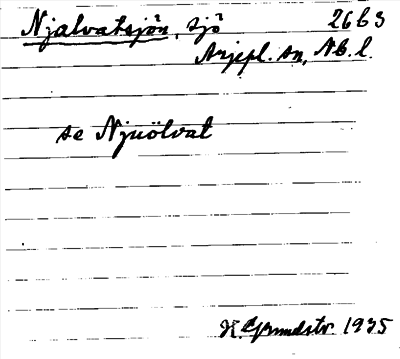 Njalvatsjön, sjö 26 b 3
Arjepl. sn, Nb. l.
se Njuölvat
H. Grundstr. 1935